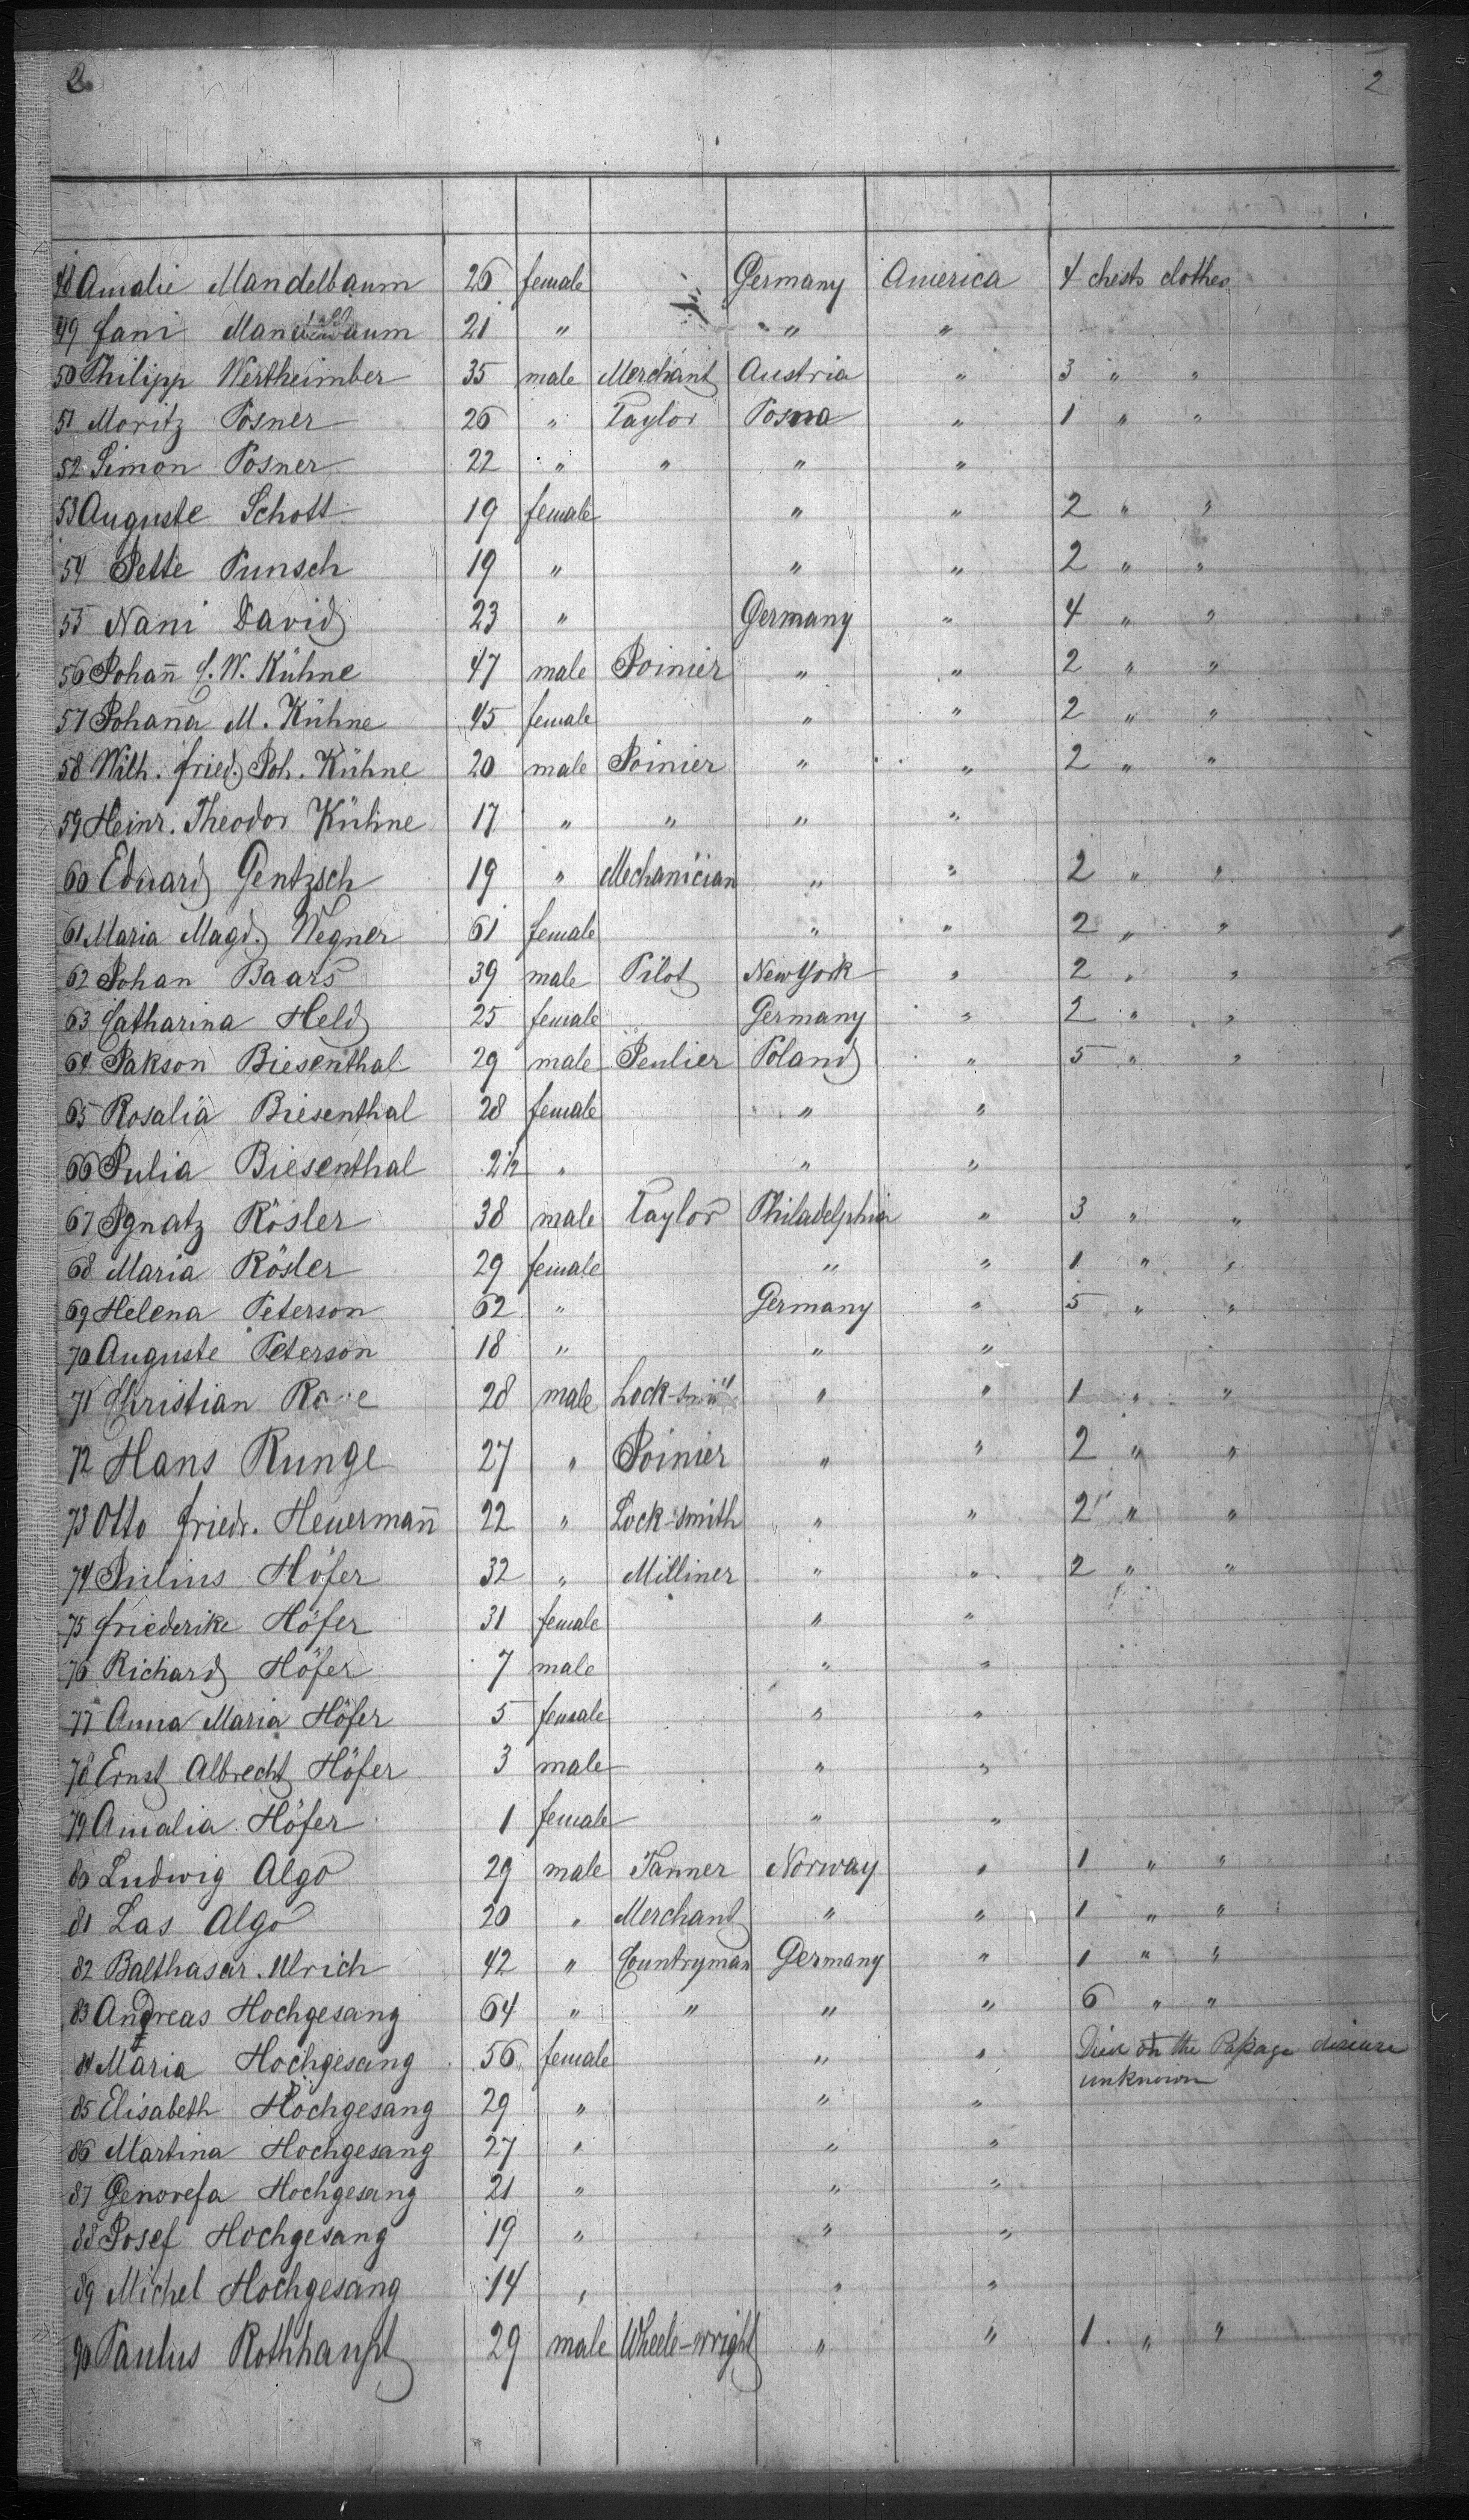 2 2
48 Amalie Mandelbaum 26 female Germany America 4 chests clothes
49 Fani Mandelbaum 21 " " "
50 Philipp Wertheimber 35 male Merchant Austria " 3 " "
51 Moritz Posner 26 " Taylor Posna " 1 " "
52 Simon Posner 22 " " " "
53 Auguste Schott 19 female " " 2 " "
54 Jette Punsch 19 " " " 2 " "
55 Nani David 23 " Germany " 4 " "
56 Johan̄ C. W. Kühne 47 male Joinier " " 2 " "
57 Johanna M. Kühne 45 female " " 2 " "
58 Wilh. Fried. Joh. Kühne 20 male Joinier " " 2 " "
59 Heinr. Theodor Kühne 17 " " " "
60 Eduard Gentzsch 19 " Mechanician " " 2 " "
61 Maria Magd. Wegner 61 female " " 2 " "
62 Johan Baars 39 male Pilot New York " 2 " "
63 Catharina Held 25 female Germany " 2 " "
64 Jakson Biesenthal 29 male Jeulier Poland " 5 " "
65 Rosalia Biesenthal 28 female " "
66 Julia Biesenthal 2½ " " "
67 Ignatz Rösler 38 male Taylor Philadelphia " 3 " "
68 Maria Rösler 29 female " " 1 " "
69 Helena Peterson 62 " Germany " 5 " "
70 Auguste Peterson 18 " " "
71 Christian 28 male Lock-smith " " 1 " "
72 Hans Runge 27 " Joinier " " 2 " "
73 Otto Friedr. Heuerman̄ 22 " Lock-smith " " 2 " "
74 Julius Höfer 32 " Milliner " " 2 " "
75 Friederike Höfer 31 female " "
76 Richard Höfer 7 male " "
77 Anna Maria Höfer 5 female " "
78 Ernst Albrecht Höfer 3 male " "
79 Amalia Höfer 1 female " "
80 Ludwig Algo 29 male Tanner Norway " 1 " "
81 Las Algo 20 " Merchant " " 1 " "
82 Balthasar Ulrich 42 " Countryman Germany " 1 " "
83 Andreas Hochgesang 64 " " " " 6 " "
84 Maria Hochgesang 56 female " " Died on the Passage disease
unknown
85 Elisabeth Hochgesang 29 " " "
86 Martina Hochgesang 27 " " "
87 Genovefa Hochgesang 21 " " "
88 Josef Hochgesang 19 " " "
89 Michel Hochgesang 14 " " "
90 Paulus Rothhaupt 29 male Wheele-wright " " 1 " "